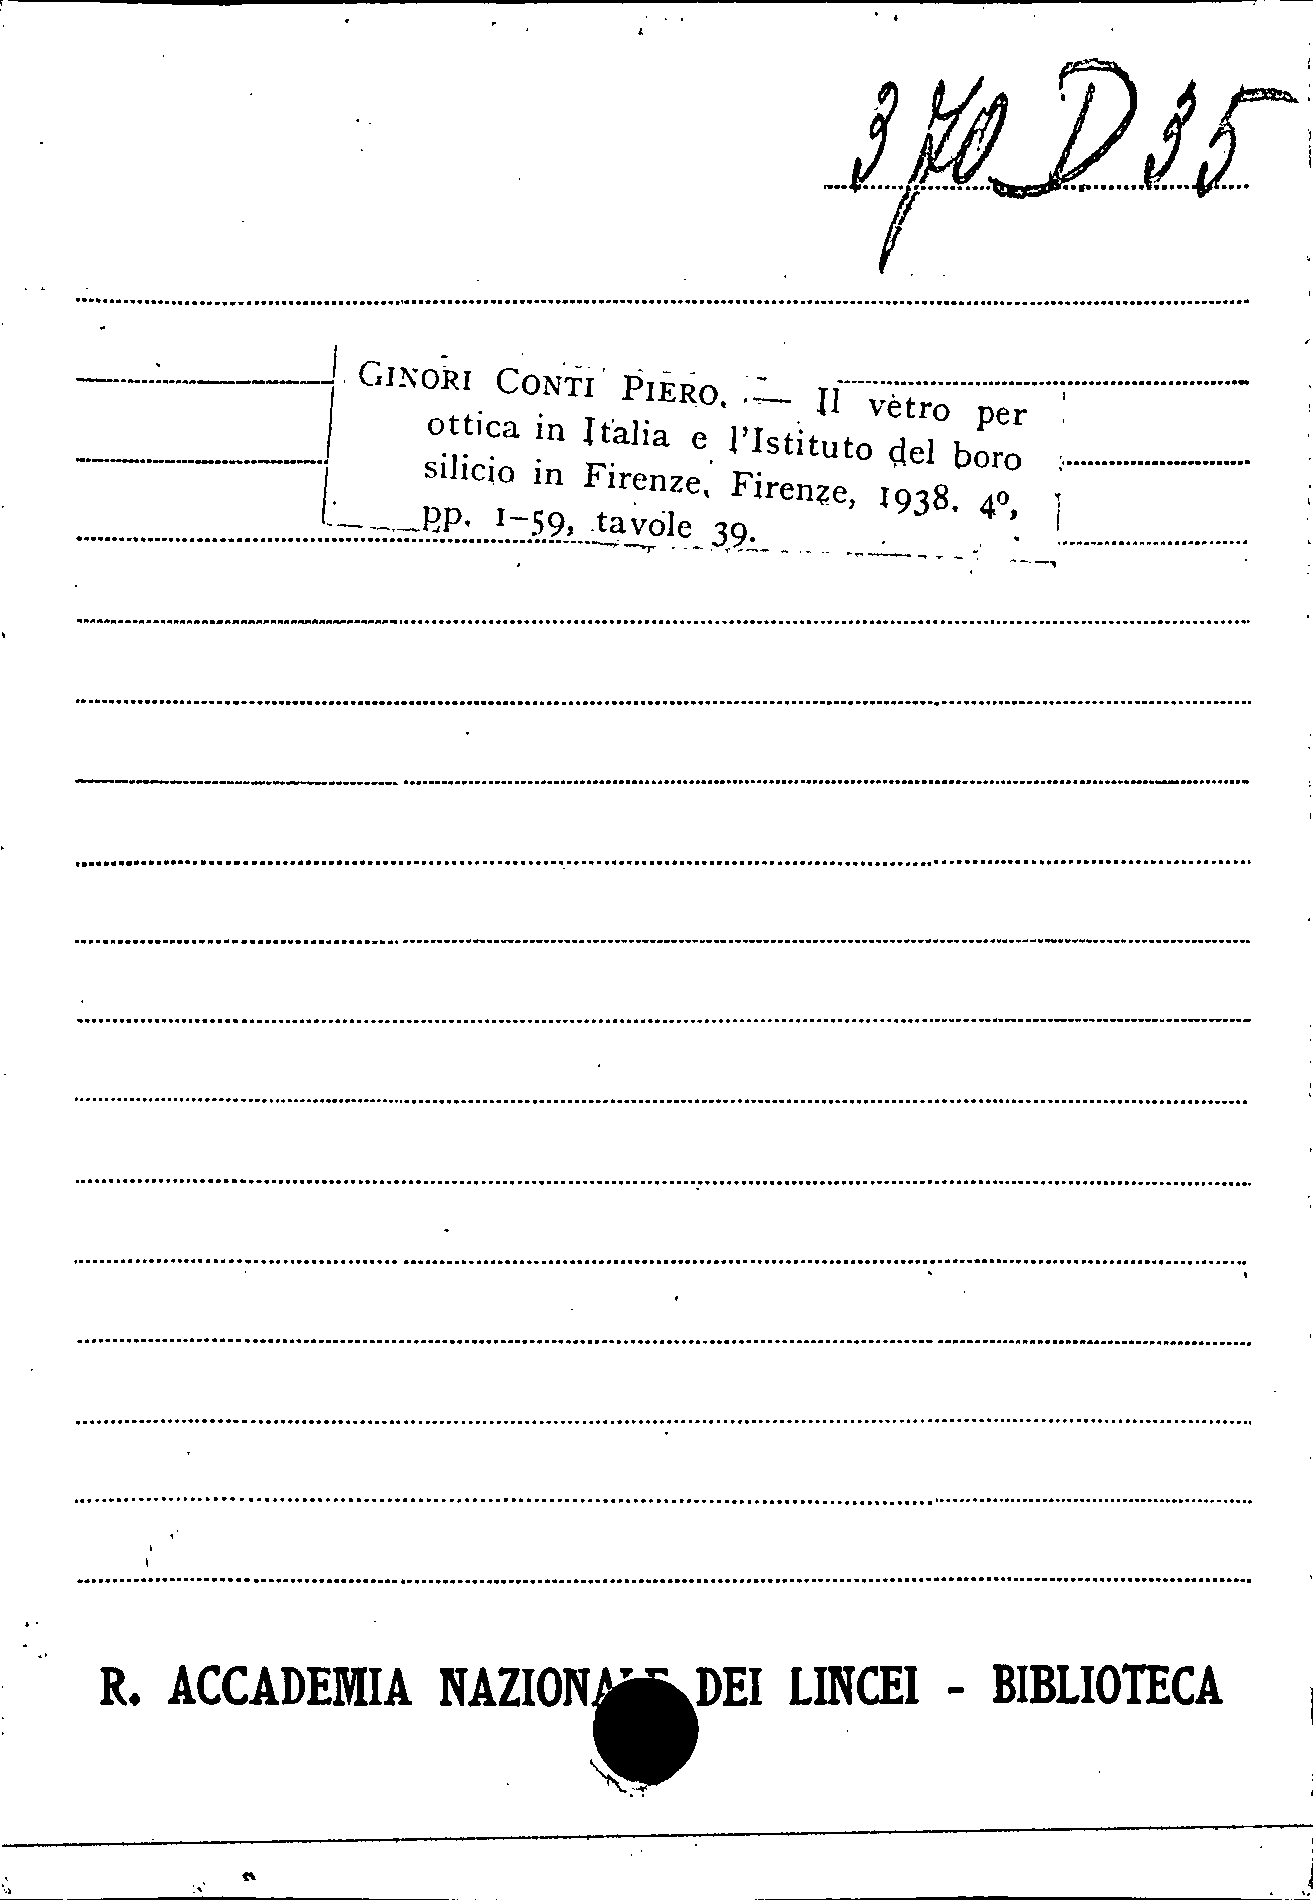 370 D 35
GINORI CONTI PIERO. — Il vetro per
ottica in Italia e l'Istituto del boro
silicio in Firenze, Firenze, 1938. 4º,
pp. 1-59, tavole 39.
R. ACCADEMIA NAZIONALE DEI LINCEI - BIBLIOTECA